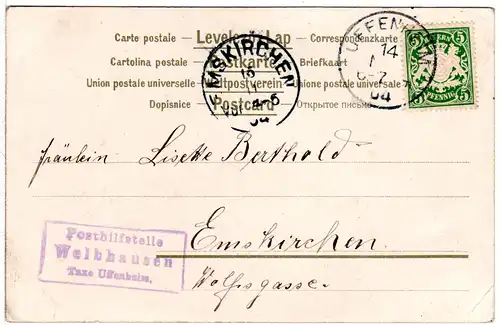 Carte postale — Levelező-Lap — Correspondenzkarte
Cartolina postale — Postkarte — Briefkaart
Union postale universelle Weltpostverein Unione postale universale
Dopisnice — Postcard — Открытое письмо
EMSKIRCHEN
04
UFFENHEIM
14
6-7
04
BAYERN
5 PFENNIG 5
Fräulein Lisette Berthold
Emskirchen.
Wolfsgasse.
Posthilfstelle
Welbhausen
Taxe Uffenheim.